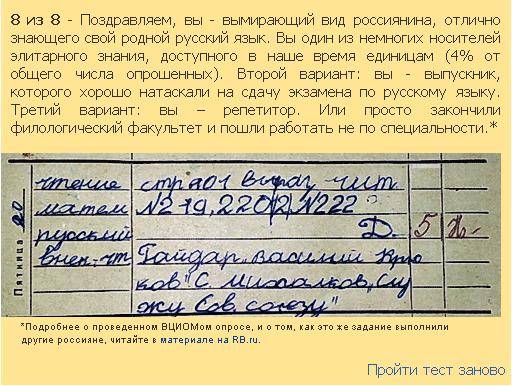 8 из 8 - Поздравляем, вы - вымирающий вид россиянина, отлично
знающего свой родной русский язык. Вы один из немногих носителей
элитарного знания, доступного в наше время единицам (4% от
общего числа опрошенных). Второй вариант: вы - выпускник,
которого хорошо натаскали на сдачу экзамена по русскому языку.
Третий вариант: вы – репетитор. Или просто закончили
филологический факультет и пошли работать не по специальности.*
чтение стр 201 чит.
матем №219, 220 №222
русский Д. 5
внек. чт Гайдар „Василий Крю
ков" С. Михалков „Слу
жу Сов. союзу"
Пятница 20
*Подробнее о проведенном ВЦИОМом опросе, и о том, как это же задание выполнили
другие россияне, читайте в материале на RB.ru.
Пройти тест заново